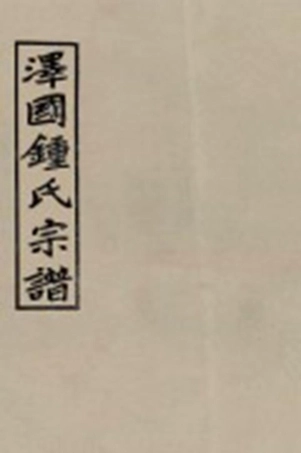 澤國鍾氏宗譜